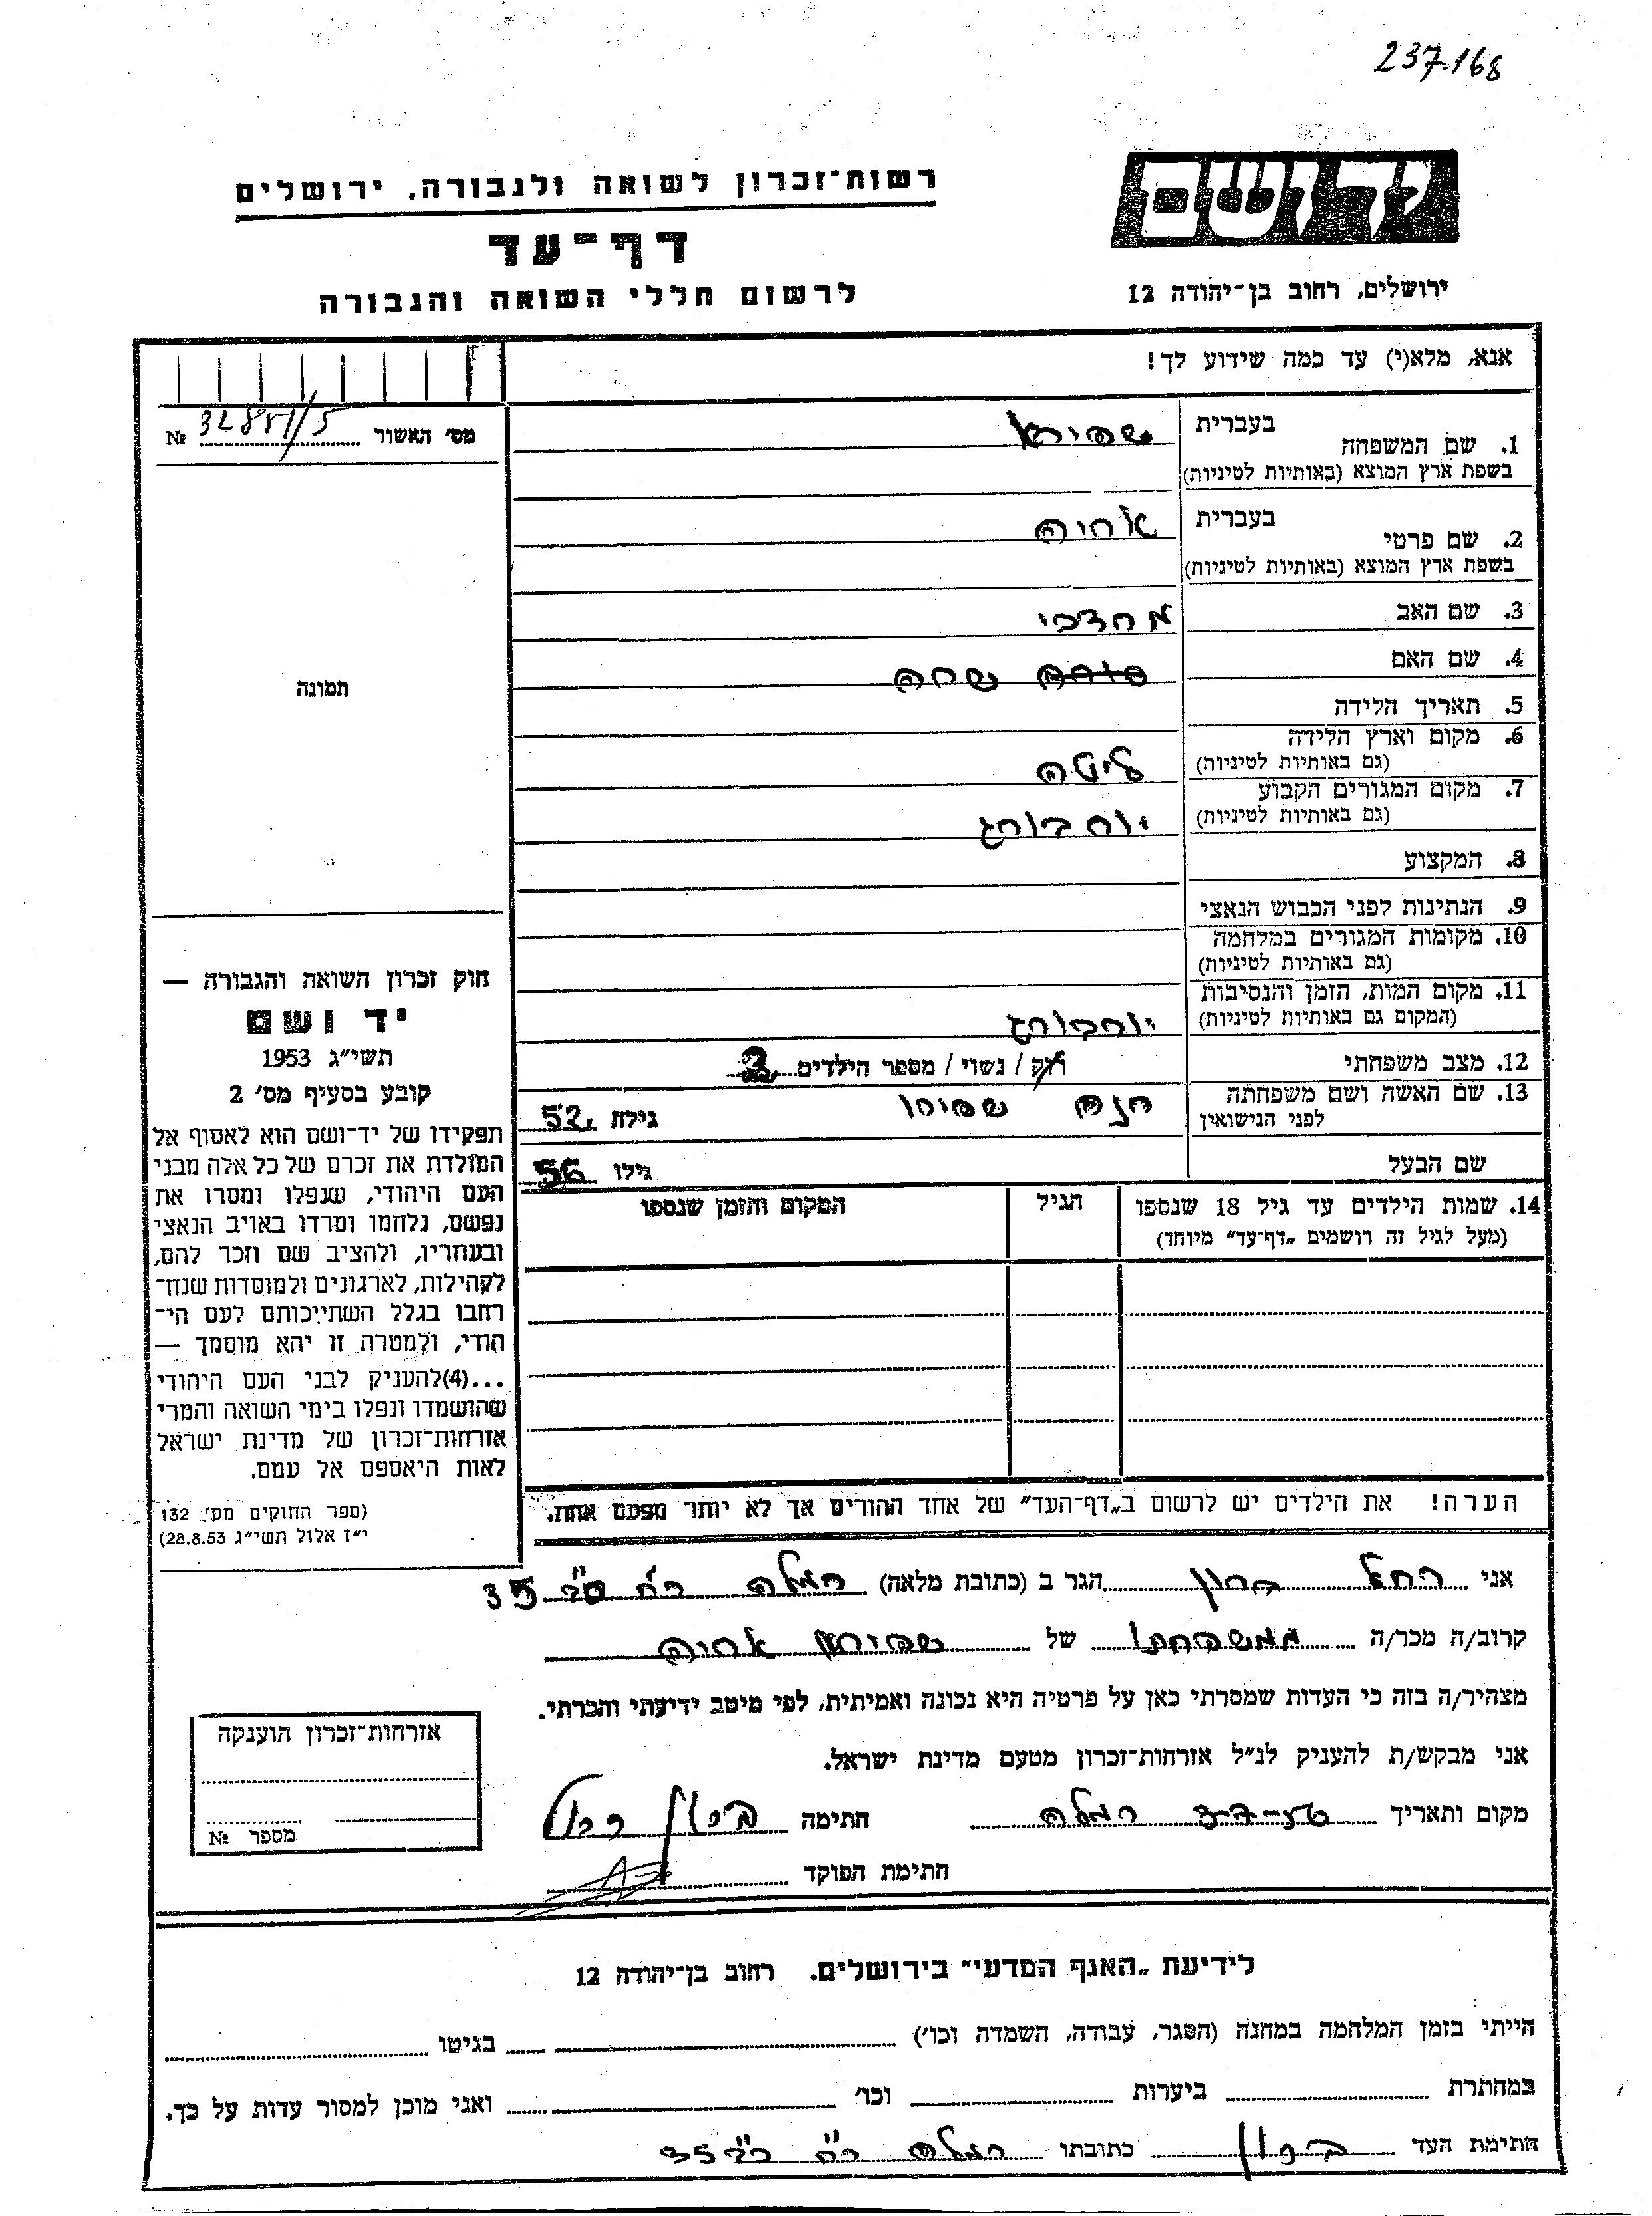 237.168
רשות־זכרון לשואה ולגבורה, ירושלים
דף־עד
לרשום חללי השואה והגבורה
ידושם
ירושלים, רחוב בן־יהודה 12
אנא, מלא(י) עד כמה שידוע לך!
מס׳ האשור № 32881/5
תמונה
1. שם המשפחה בעברית שפירא
בשפת ארץ המוצא (באותיות לטיניות)
2. שם פרטי בעברית אריה
בשפת ארץ המוצא (באותיות לטיניות)
3. שם האב מרדכי
4. שם האם שרה
5. תאריך הלידה
6. מקום וארץ הלידה ליטה
(גם באותיות לטיניות)
7. מקום המגורים הקבוע יורבורג
(גם באותיות לטיניות)
8. המקצוע
9. הנתינות לפני הכבוש הנאצי
10. מקומות המגורים במלחמה
(גם באותיות לטיניות)
11. מקום המות, הזמן והנסיבות יורבורג
(המקום גם באותיות לטיניות)
12. מצב משפחתי רוק / נשוי / מספר הילדים 3
13. שם האשה ושם משפחתה חנה שפירו גילה 52
לפני הנישואין
שם הבעל גילו 56
14. שמות הילדים עד גיל 18 שנספו הגיל המקום והזמן שנספו
(מעל לגיל זה רושמים „דף־עד” מיוחד)
הערה! את הילדים יש לרשום ב„דף־העד” של אחד ההורים אך לא יותר מפעם אחת.
חוק זכרון השואה והגבורה —
יד ושם
תשי״ג 1953
קובע בסעיף מס׳ 2
תפקידו של יד־ושם הוא לאסוף אל
המולדת את זכרם של כל אלה מבני
העם היהודי, שנפלו ומסרו את
נפשם, נלחמו ומרדו באויב הנאצי
ובעוזריו, ולהציב שם וזכר להם,
לקהילות, לארגונים ולמוסדות שנח־
רבו בגלל השתייכותם לעם הי־
הודי, ולמטרה זו יהא מוסמך —
...(4)להעניק לבני העם היהודי
שהושמדו ונפלו בימי השואה והמרי
אזרחות־זכרון של מדינת ישראל
לאות היאספם אל עמם.
(ספר החוקים מס׳ 132
י״ז אלול תשי״ג 28.8.53)
אני רחל ברון הגר ב (כתובת מלאה) רמלה 35
קרוב/ה מכר/ה של שפירא אריה
מצהיר/ה בזה כי העדות שמסרתי כאן על פרטיה היא נכונה ואמיתית, לפי מיטב ידיעתי והכרתי.
אני מבקש/ת להעניק לנ״ל אזרחות־זכרון מטעם מדינת ישראל.
מקום ותאריך רמלה חתימה
חתימת הפוקד
אזרחות־זכרון הוענקה
מספר №
לידיעת „האגף המדעי” בירושלים. רחוב בן־יהודה 12
הייתי בזמן המלחמה במחנה (הסגר, עבודה, השמדה וכו׳) בגיטו
במחתרת ביערות וכו׳ ואני מוכן למסור עדות על כך.
חתימת העד כתובתו רמלה 35